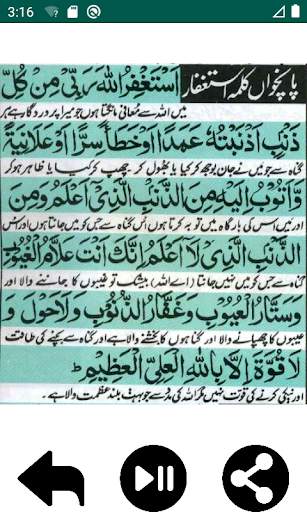 3:16
پانچواں کلمہ استغفار
اَسْتَغْفِرُ اللهَ رَبِّیْ مِنْ كُلِّ
میں اللہ سے معافی مانگتا ہوں جو میرا پروردگار ہے ہر
ذَنْۢبٍ اَذْنَبْتُهٗ عَمَدًا اَوْ خَطَأً سِرًّا اَوْ عَلَانِيَةً
گناہ سے جو میں نے جان بوجھ کر کیا یا بھول کر چھپ کر کیا یا ظاہر ہو کر
وَّاَتُوْبُ اِلَيْهِ مِنَ الذَّنْۢبِ الَّذِیْ اَعْلَمُ وَمِنَ
اور میں اس کی بارگاہ میں توبہ کرتا ہوں اس گناہ سے جس کو میں جانتا ہوں اور اس
الذَّنْۢبِ الَّذِیْ لَا اَعْلَمُ اِنَّكَ اَنْتَ عَلَّامُ الْغُيُوْبِ
گناہ سے جس کو میں نہیں جانتا (اے اللہ) بیشک تو غیبوں کا جاننے والا اور
وَسَتَّارُ الْعُيُوْبِ وَغَفَّارُ الذُّنُوْبِ وَلَاحَوْلَ وَ
عیبوں کا چھپانے والا اور گناہوں کا بخشنے والا ہے اور گناہ سے بچنے کی طاقت
لَا قُوَّةَ اِلَّا بِاللهِ الْعَلِیِّ الْعَظِيْمِ ؕ
اور نیکی کرنے کی قوت نہیں مگر اللہ کی مدد سے جو بہت بلند عظمت والا ہے۔